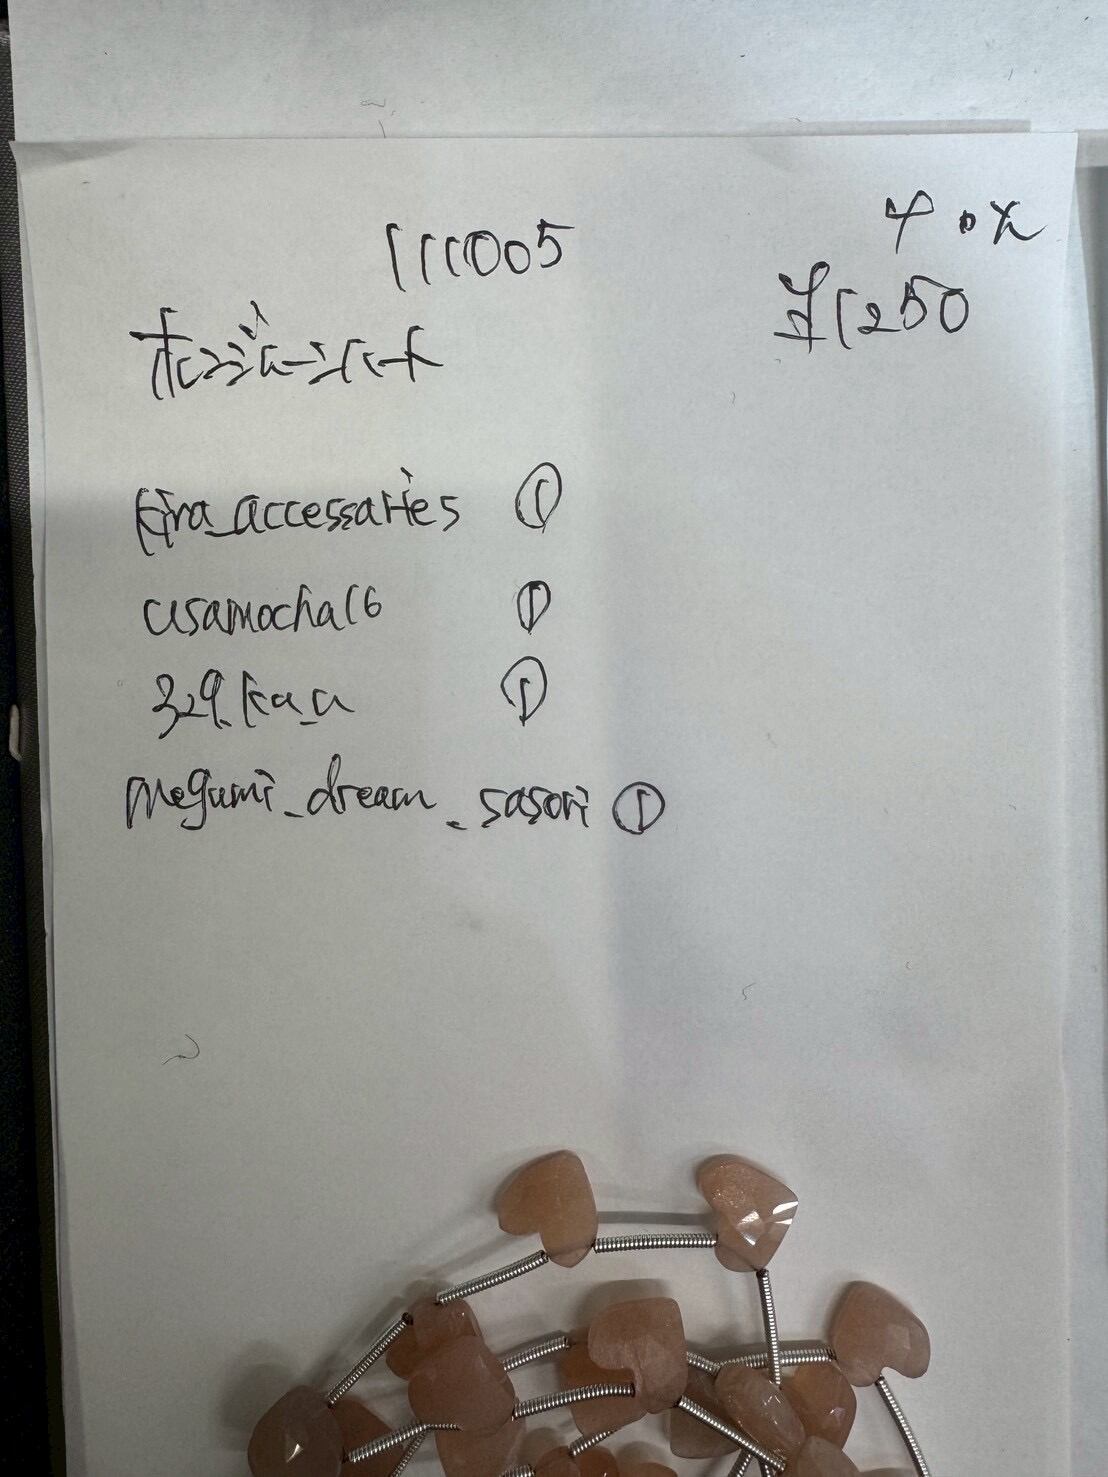 111005
¥1250
kira_accessaries ①
usamocha16 ①
329_ka_a ①
megumi_dream_sasori ①